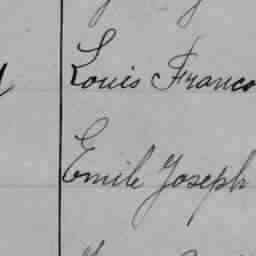 Louis Franco
Emile Joseph